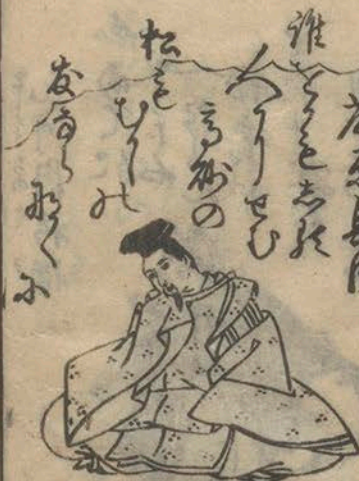 誰をかもしる
人にせむ
高砂の
松も
むかしの
友ならなくに